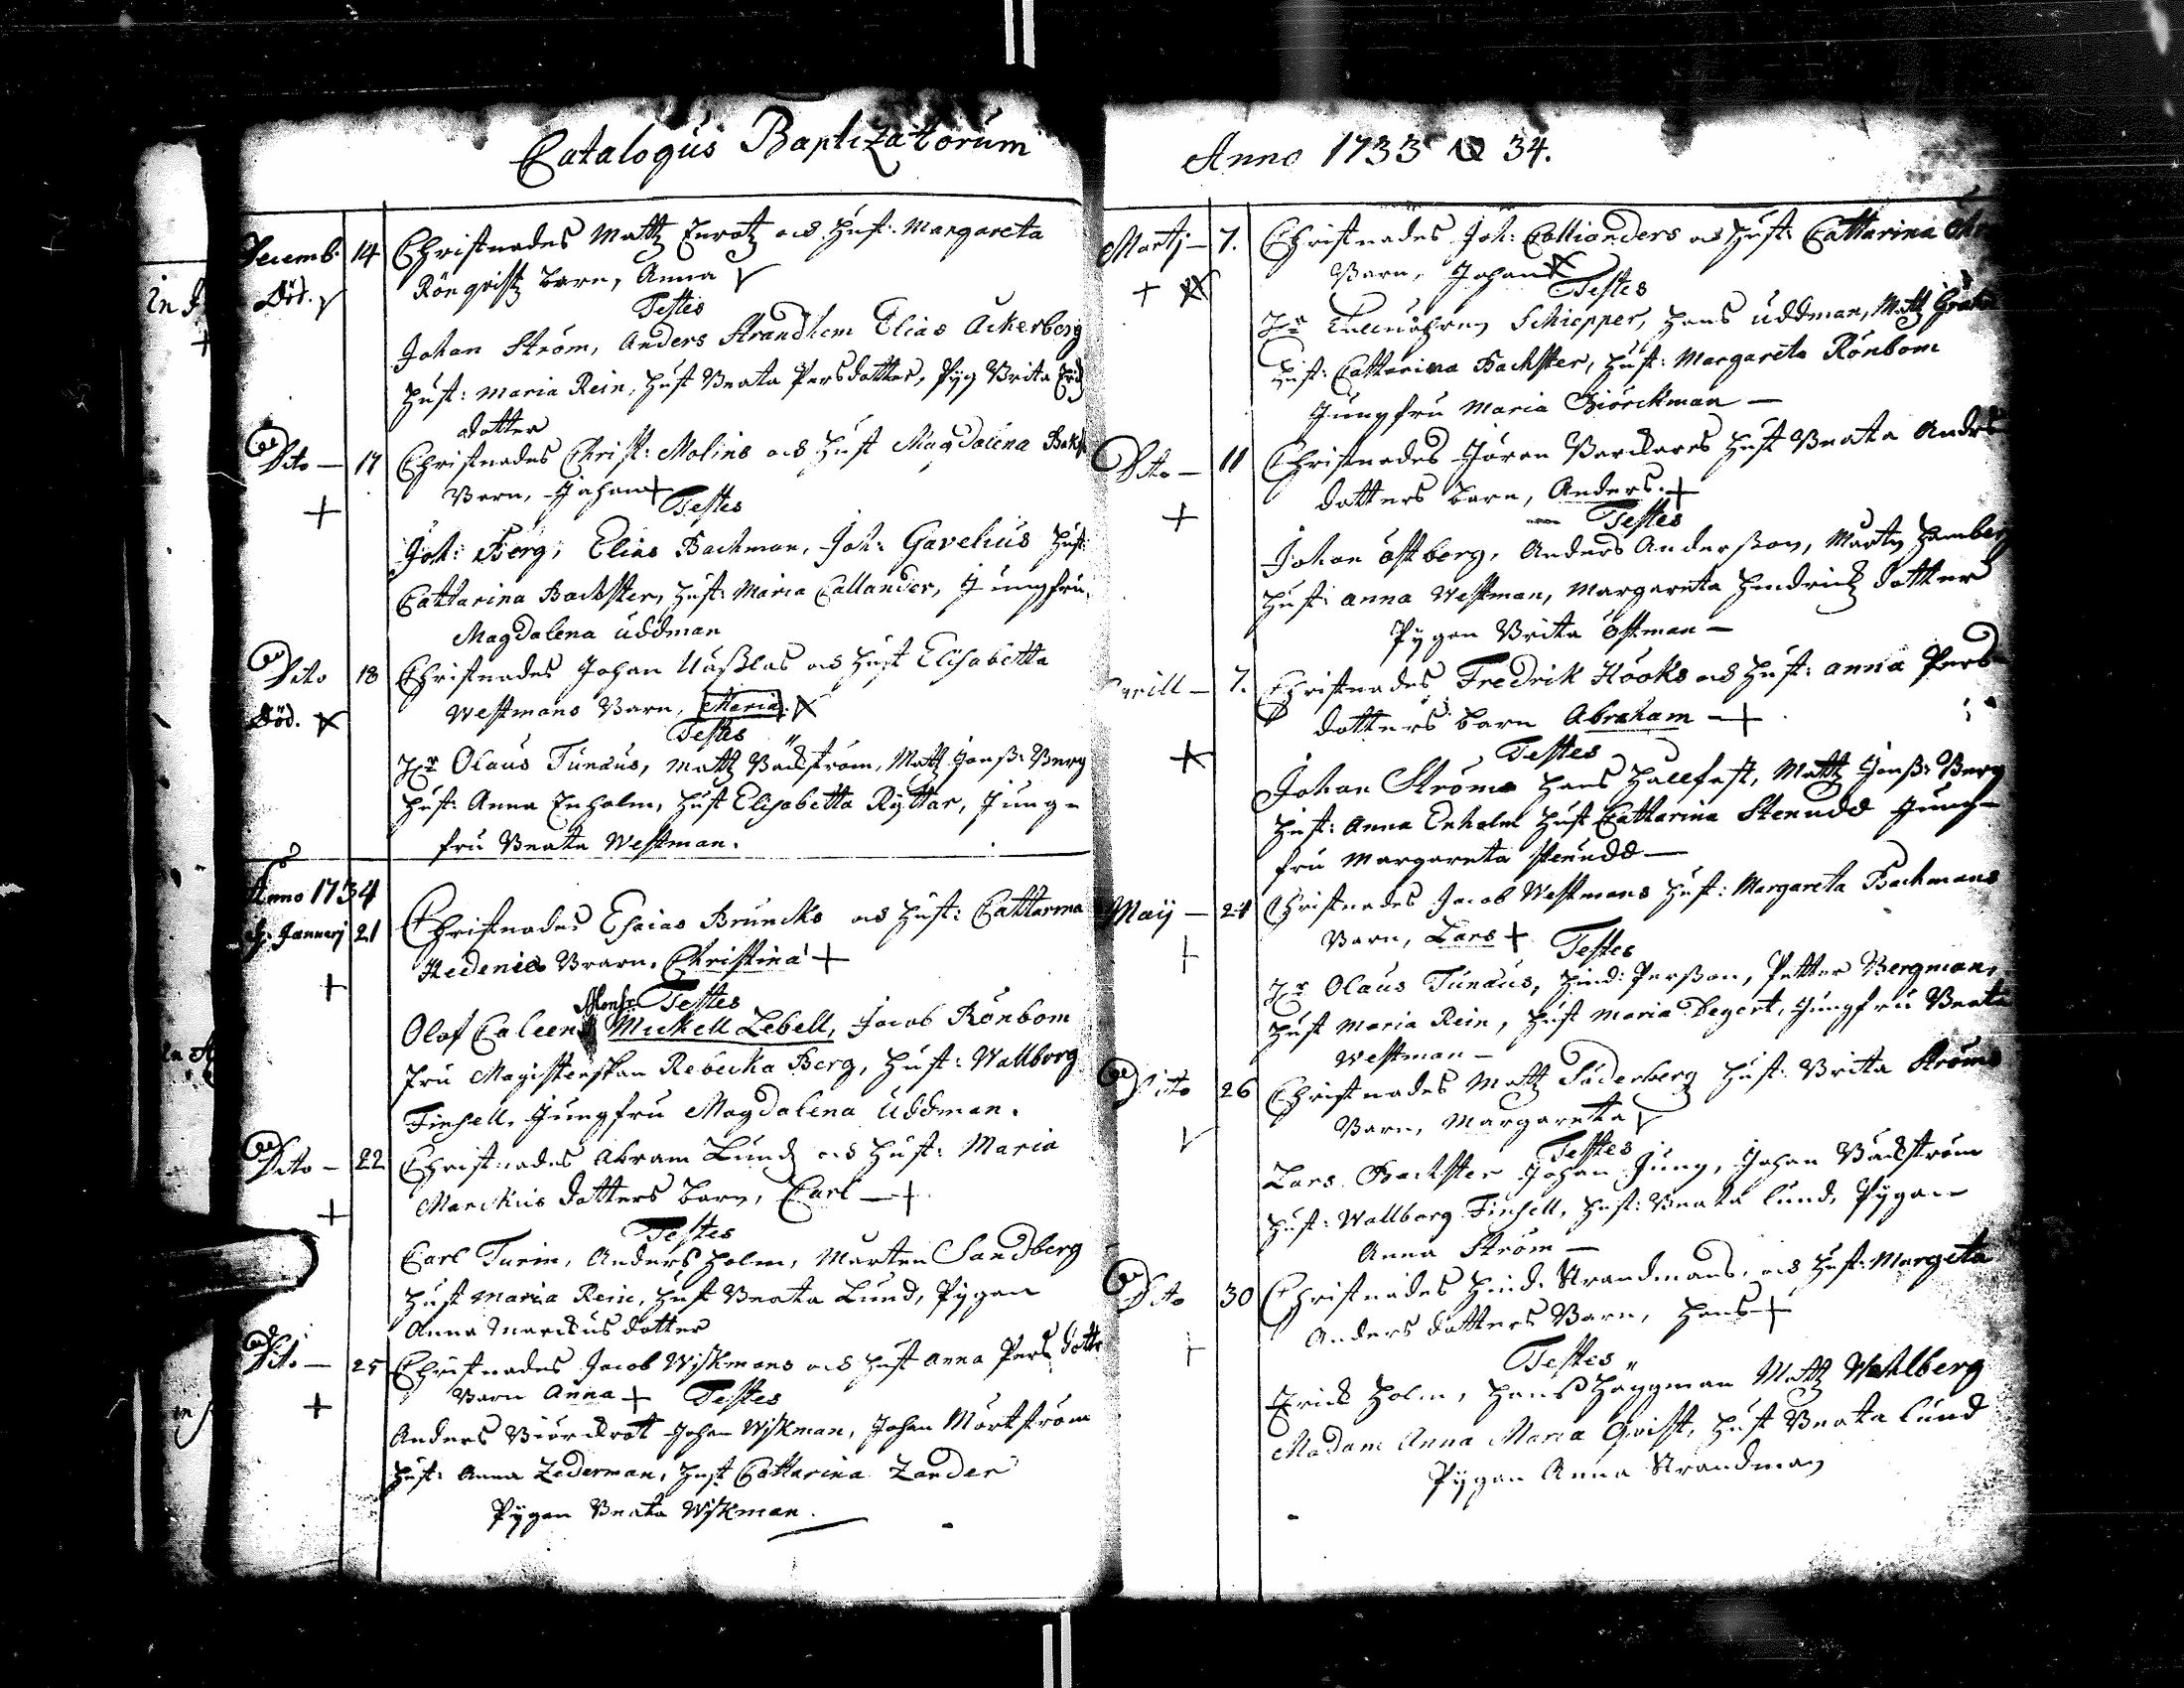 Catalogus Baptizatorum
Decemb: 14 Christnades Mattz Enrotz och Hust: Margareta
Död. Rönqvistz barn, Anna
Testes
Johan Ström, Anders Strandhem Elias Ackerberg
Hust: Maria Rein, Hust Beata Persdotter, Pyg Brita
dotter
Dito — 17 Christnades Christ: Molins och Hust Magdalena
+ Barn, Johan +
Testes
Joh: Berg, Elias Backman, Joh: Gavelius Hust:
Cattarina Backster, Hust: Maria Callander, Jungfru
Magdalena Uddman
Dito 18 Christnades Johan och Hust Elisabetta
Död. Westmans Barn, Maria.
Testes
Hr Olaus Tunæus, Mattz Bäckström, Mattz Jonss: Berg
Hust: Anna Enholm, Hust Elisabetta Ryttar, Jung=
fru Beata Westman.
Anno 1734
Januarij 21 Christnades Esaias Bruncks och Hust: Cattarina
+ Barn. Christina +
Testes
Olof Monsr Mickell Lebell, Jacob Rönbom
Fru Magisterskan Rebecka Berg, Hust: Wallborg
Finsell. Jungfru Magdalena Uddman.
Dito — 22 Christnades Abram Lund och Hust: Maria
+ Marckus dotters barn, Carl — +
Testes
Carl Turin, Anders Holm, Marten Sandberg
Hust Maria Rein, Hust Beata Lund, Pygan
Anna Marckus dotter
Dito — 25 Christnades Jacob Wiskmans och Hust Anna Pers dotter
+ Barn Anna + Testes
Anders Biörckrot Johan Wiskman, Johan Mortström
Hust: Anna Zederman, Hust Cattarina Zander
Pygan Beata Wiskman.
Anno 1733 & 34.
Martj — 7. Christnades Joh: Callianders och Hust: Cattarina
+ Barn, Johan
Testes
Hr Schiepper, Hans Uddman, Mattz
Hust: Cattarina Backster, Hust: Margareta Rönbom
Jungfru Maria Biörckman —
Dito — 11 Christnades Jöran Barckares Hust Beata Anders
+ dotters barn, Anders. +
Testes
Johan Östberg, Anders Andersson, Martn Hamberg
Hust: Anna Westman, Margareta Hindrichz dotter
Pygan Brita Östman —
Aprill — 7. Christnades Fredrik Hööks och Hust: Anna Pers=
dotters barn Abraham — +
Testes
Johan Ström Hans Hallfast, Mattz Jonss: Berg
Hust: Anna Enholm Hust Cattarina Stenudd Jung=
fru Margareta Stenudd —
Maij — 21 Christnades Jacob Westmans Hust: Margareta Backmans
+ Barn, Lars +
Testes
Hr Olaus Tunæus, Hind: Persson, Petter Bergman,
Hust Maria Rein, Hust Maria Degert, Jungfru Beata
Westman —
Dito 26 Christnades Mattz Söderberg Hust: Britta Ströms
Barn, Margareta
Testes
Lars Backster Johan Jung, Johan Bäckström
Hust: Wallborg Finsell, Hust: Beata Lund, Pygan
Anna Ström —
Dito 30 Christnades Hind: Strandmans, och Hust: Margeta
+ Anders dotters Barn, Hans +
Testes
Erick Holm, Hans Häggman Mattz Wahlberg
Madam Anna Maria Qvist, Hust Beata Lund
Pygan Anna Strandman